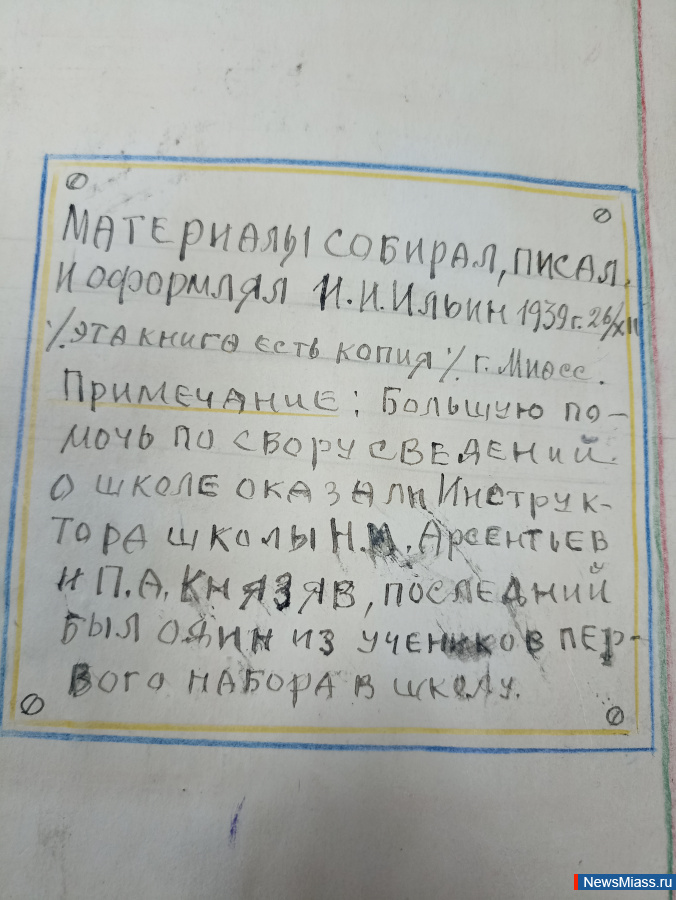 МАТЕРИАЛЫ СОБИРАЛ, ПИСАЛ,
И ОФОРМЛЯЛ И.И.ИЛЬИН 1939г. 26/XII
%.ЭТА КНИГА ЕСТЬ КОПИЯ % г. Миасс.
ПРИМЕЧАНИЕ: БОЛЬШУЮ ПО-
МОЧЬ ПО СБОРУ СВЕДЕНИЙ
О ШКОЛЕ ОКАЗАЛИ ИНСТРУК-
ТОРА ШКОЛЫ Н.М. АРСЕНТЬЕВ
И П.А. КНЯЗЯВ, ПОСЛЕДНИЙ
БЫЛ ОДИН ИЗ УЧЕНИКОВ ПЕР-
ВОГО НАБОРА В ШКОЛУ.
NewsMiass.ru